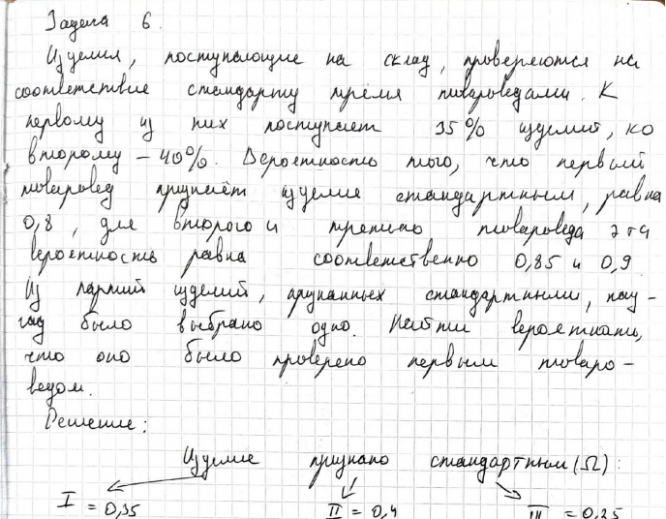 Задача 6.
Изделия, поступающие на склад, проверяются на
соответствие стандарту тремя товароведами. К
первому из них поступает 35% изделий, ко
второму – 40%. Вероятность того, что первый
товаровед признает изделие стандартным, равна
0,8, для второго и третьего товароведа эта
вероятность равна соответственно 0,85 и 0,9
Из партий изделий, признанных стандартными, нау-
гад было выбрано одно. Найти вероятность,
что оно было проверено первым товаро-
ведом.
Решение:
Изделие признано стандартным (Ω):
I = 0,35 II = 0,4 III = 0,25